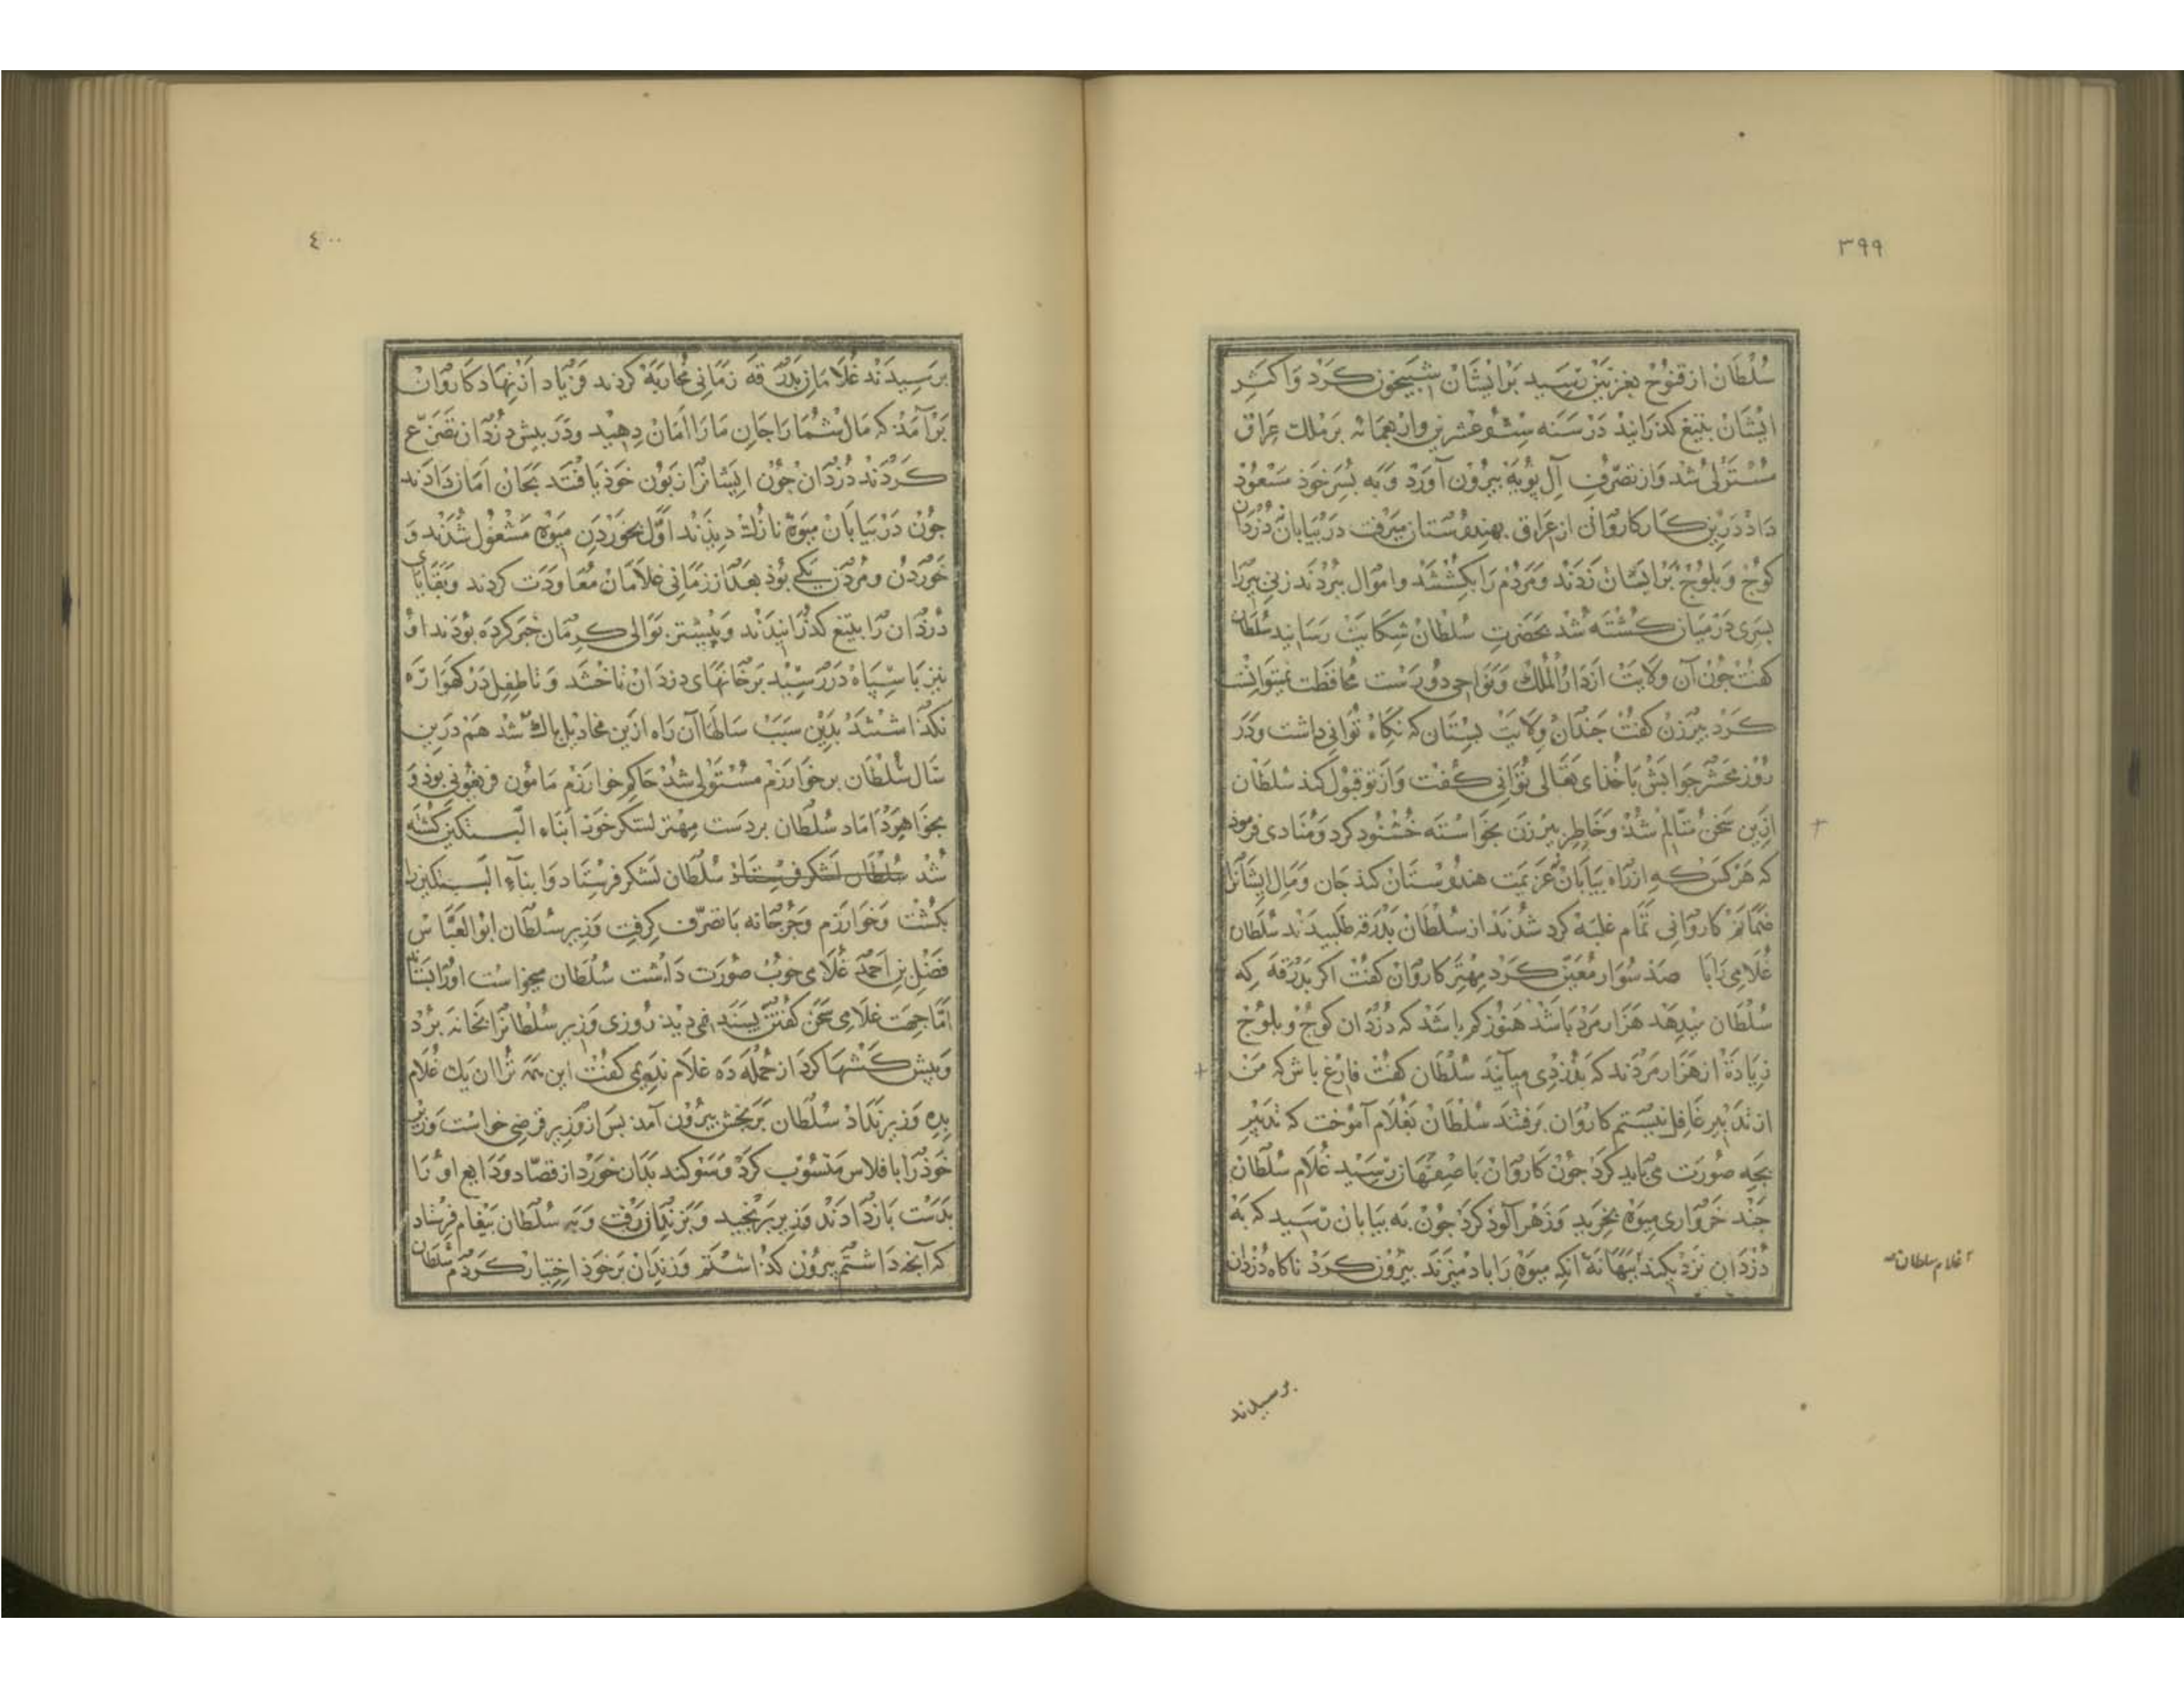 ٣٩٩
سُلْطَانْ از قنوُجْ بغزنین رسید بَرایشَانْ شبیخون کَرَدْ وَاکثر
ایشَانْ بتیغ کذرَانید دَرْسَنَه ستّ وعشرین واربعمائه بر ملک عِراق
مُسْتَوْلی شد وَاز تصَرّفِ آل بُویَهْ بیرُون آوَرْد وَبَه پسَرخوذ مَسْعُوْد
دَاد دَرین کار کاروانی از عِراق بهندوُستان میرفت در بیابان دُزدان
کوُجْ وَبلوُجْ بَرایشان زَدَند وَمَردُمْ رَا بکشتند واموَال ببرُدْند زنی پیررا
پسری دَرمیان کشته شد بحَضرتِ سُلطانْ شِکایَتْ رَسَانید سُلطان
کفتْ جُونْ آن وِلایَتْ ازدَارُالمُلکْ وَنَوَاحی دُورسْت مُحافظت نمیتوانست
کَردْ پیرزن کفتْ جندان وِلایَتْ بستان که نکاهْ تُوانی داشت وَدَر
رُوز مَحْشَر جوابش باخذای تعَالی تُوانی کفت وَازتو قبوُل کند سُلطان
ازین سَخنْ متألم شذ وَخَاطِر پیرزن بخوَاسْته خُشنود کرد وَمُنادی فرموذ
که هرکس که از راه بیابان عَزیمَت هندوُسْتان کند جان وَمال ایشانرا
ضمانم کاروَانی تمام غلبَه کرد شدند از سُلطان بَدرَقه طلبیدند سُلطان
غُلامی رَابا صَذ سُوَار مُعَیّن کَرَد مِهتر کارْوَان کفتْ اکر بدرَقه که
سُلطان میدِهَد هَزار مَرد باشذ هَنوُز کم باشد که دُزدان کوُجْ وبلوُجْ
زیادَة از هَزار مردند که بدُزدی میآیند سُلطان کفت فارغ باش که مَنْ
از تدبیر غافل نیستم کاروَان برفتند سُلطان بغُلام آموُخت که تدبیر
بجه صُورَت می باید کرد جُون کاروَان باصِفهان رسید غُلام سُلطان
جَند خروَاری میوَه بخرید وَزهر آلوُذ کرد جُون به بیابان رسید که به
دُزدان نزدیکند ببَهانَهٔ آنکه میوَه رَا باد میزند بیرُون کرد ناکاه دُزدان
غلام سلطان
برسیدند
٤٠٠
برَسیدَند غُلامان بَدرَقه زمانی مُحاربَه کردند فریاد از نهاد کاروَانْ
بَرآمَذ که مَال شُمارَا جان مَارَا امَان دِهید ودَر پیش دُزدان تضَرّع
کردَند دُزدَان جُون ایشانرا زبُون خوذ یافتند بجان امَان دَادند
جُون دَر بیابان میوَهٔ نازُک دیذند اوّل بخورَدنِ میوَه مَشغُول شذند وَ
خورْدن ومُردن یکی بُوذ بعد از زمانی غلامان مُعاوَدَت کردند وبَقایای
دُزدان رَا بتیغ کذرانیدند وَپیشتر بوَالی کرمان خبر کرده بُودَند او
نیز باسپاه دَر رسید بر خَانهای دزدان تاختند وَتا طِفل در کهوَاره
نکذاشتند بدین سبَب سَالها آن رَاه ازین مخاذیل پاک شد هَم درین
سَال سُلْطان بر خوَارَزم مُسْتوْلی شذ حَاکم خوارَزم مَامُون فریغونی بوذ وَ
بخوَاهر دَاماد سُلطان بردست مِهتر لشکر خوذ ابناء البتکین کشته
شد سُلطان لشکر فرستاد سُلطان لشکر فرستاد وَابناء البتکین را
بکشت وَخوَارزم وَجُرجانه باتصَرّف کرفت وَزیر سُلطان ابوُالعَبّاس
فضل بن احمَد غُلامی خوبْ صُورَت دَاشت سُلطان میخواست اوُرا بستاند
امّا جهَت غلامی سَخن کفتن پسندَ نمی دید رُوزی وَزیر سُلطانرا بخانه برُد
وَپیش کشیها کرد از جُمله دَه غلام ندیمی کفت این همه ترا آن یک غُلام
بده وَزیر نداد سُلطان برنجش بیرُون آمد پس از وَزیر قرضی خواست وَزیر
خوذ را بافلاس مَنسُوب کرد وَسَوکند بدان خورد از قضا دو ودَایع او نا
بدَست بازدَادند وَزیر برَنجید وَبزندان رفت وَبه سُلطان پیغام فرستاد
که آنجه دَاشتم بیرُون کذاشتم وَزندان بَرخوذ اختیار کردم سُلطان